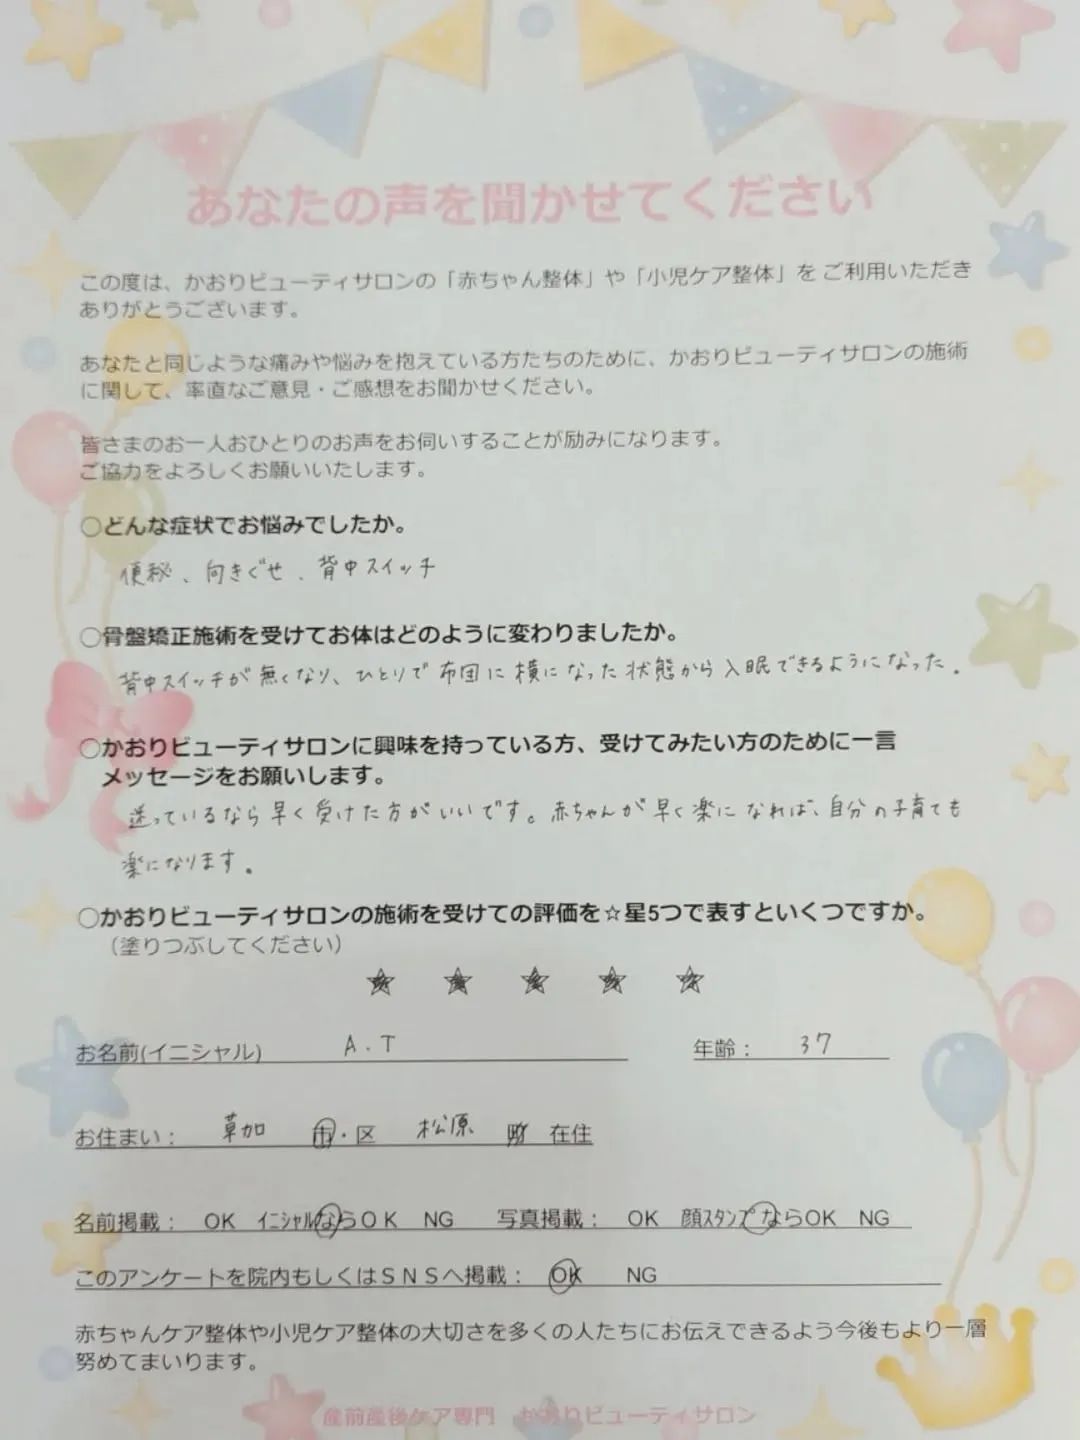 あなたの声を聞かせてください
この度は、かおりビューティサロンの「赤ちゃん整体」や「小児ケア整体」を ご利用いただき
ありがとうございます。
あなたと同じような痛みや悩みを抱えている方たちのために、かおりビューティサロンの施術
に関して、率直なご意見・ご感想をお聞かせください。
皆さまのお一人おひとりのお声をお伺いすることが励みになります。
ご協力をよろしくお願いいたします。
○どんな症状でお悩みでしたか。
便秘、向きぐせ、背中スイッチ
○骨盤矯正施術を受けてお体はどのように変わりましたか。
背中スイッチが無くなり、ひとりで布団に横になった状態から入眠できるようになった。
○かおりビューティサロンに興味を持っている方、受けてみたい方のために一言
メッセージをお願いします。
迷っているなら早く受けた方がいいです。赤ちゃんが早く楽になれば、自分の子育ても
楽になります。
○かおりビューティサロンの施術を受けての評価を☆星5つで表すといくつですか。
（塗りつぶしてください）
★ ★ ★ ★ ★
お名前(イニシャル) A.T 年齢： 37
お住まい： 草加 市・区 松原 町 在住
名前掲載： OK イニシャルならOK NG 写真掲載： OK 顔スタンプならOK NG
このアンケートを院内もしくはSNSへ掲載： OK NG
赤ちゃんケア整体や小児ケア整体の大切さを多くの人たちにお伝えできるよう今後もより一層
努めてまいります。
産前産後ケア専門 かおりビューティサロン